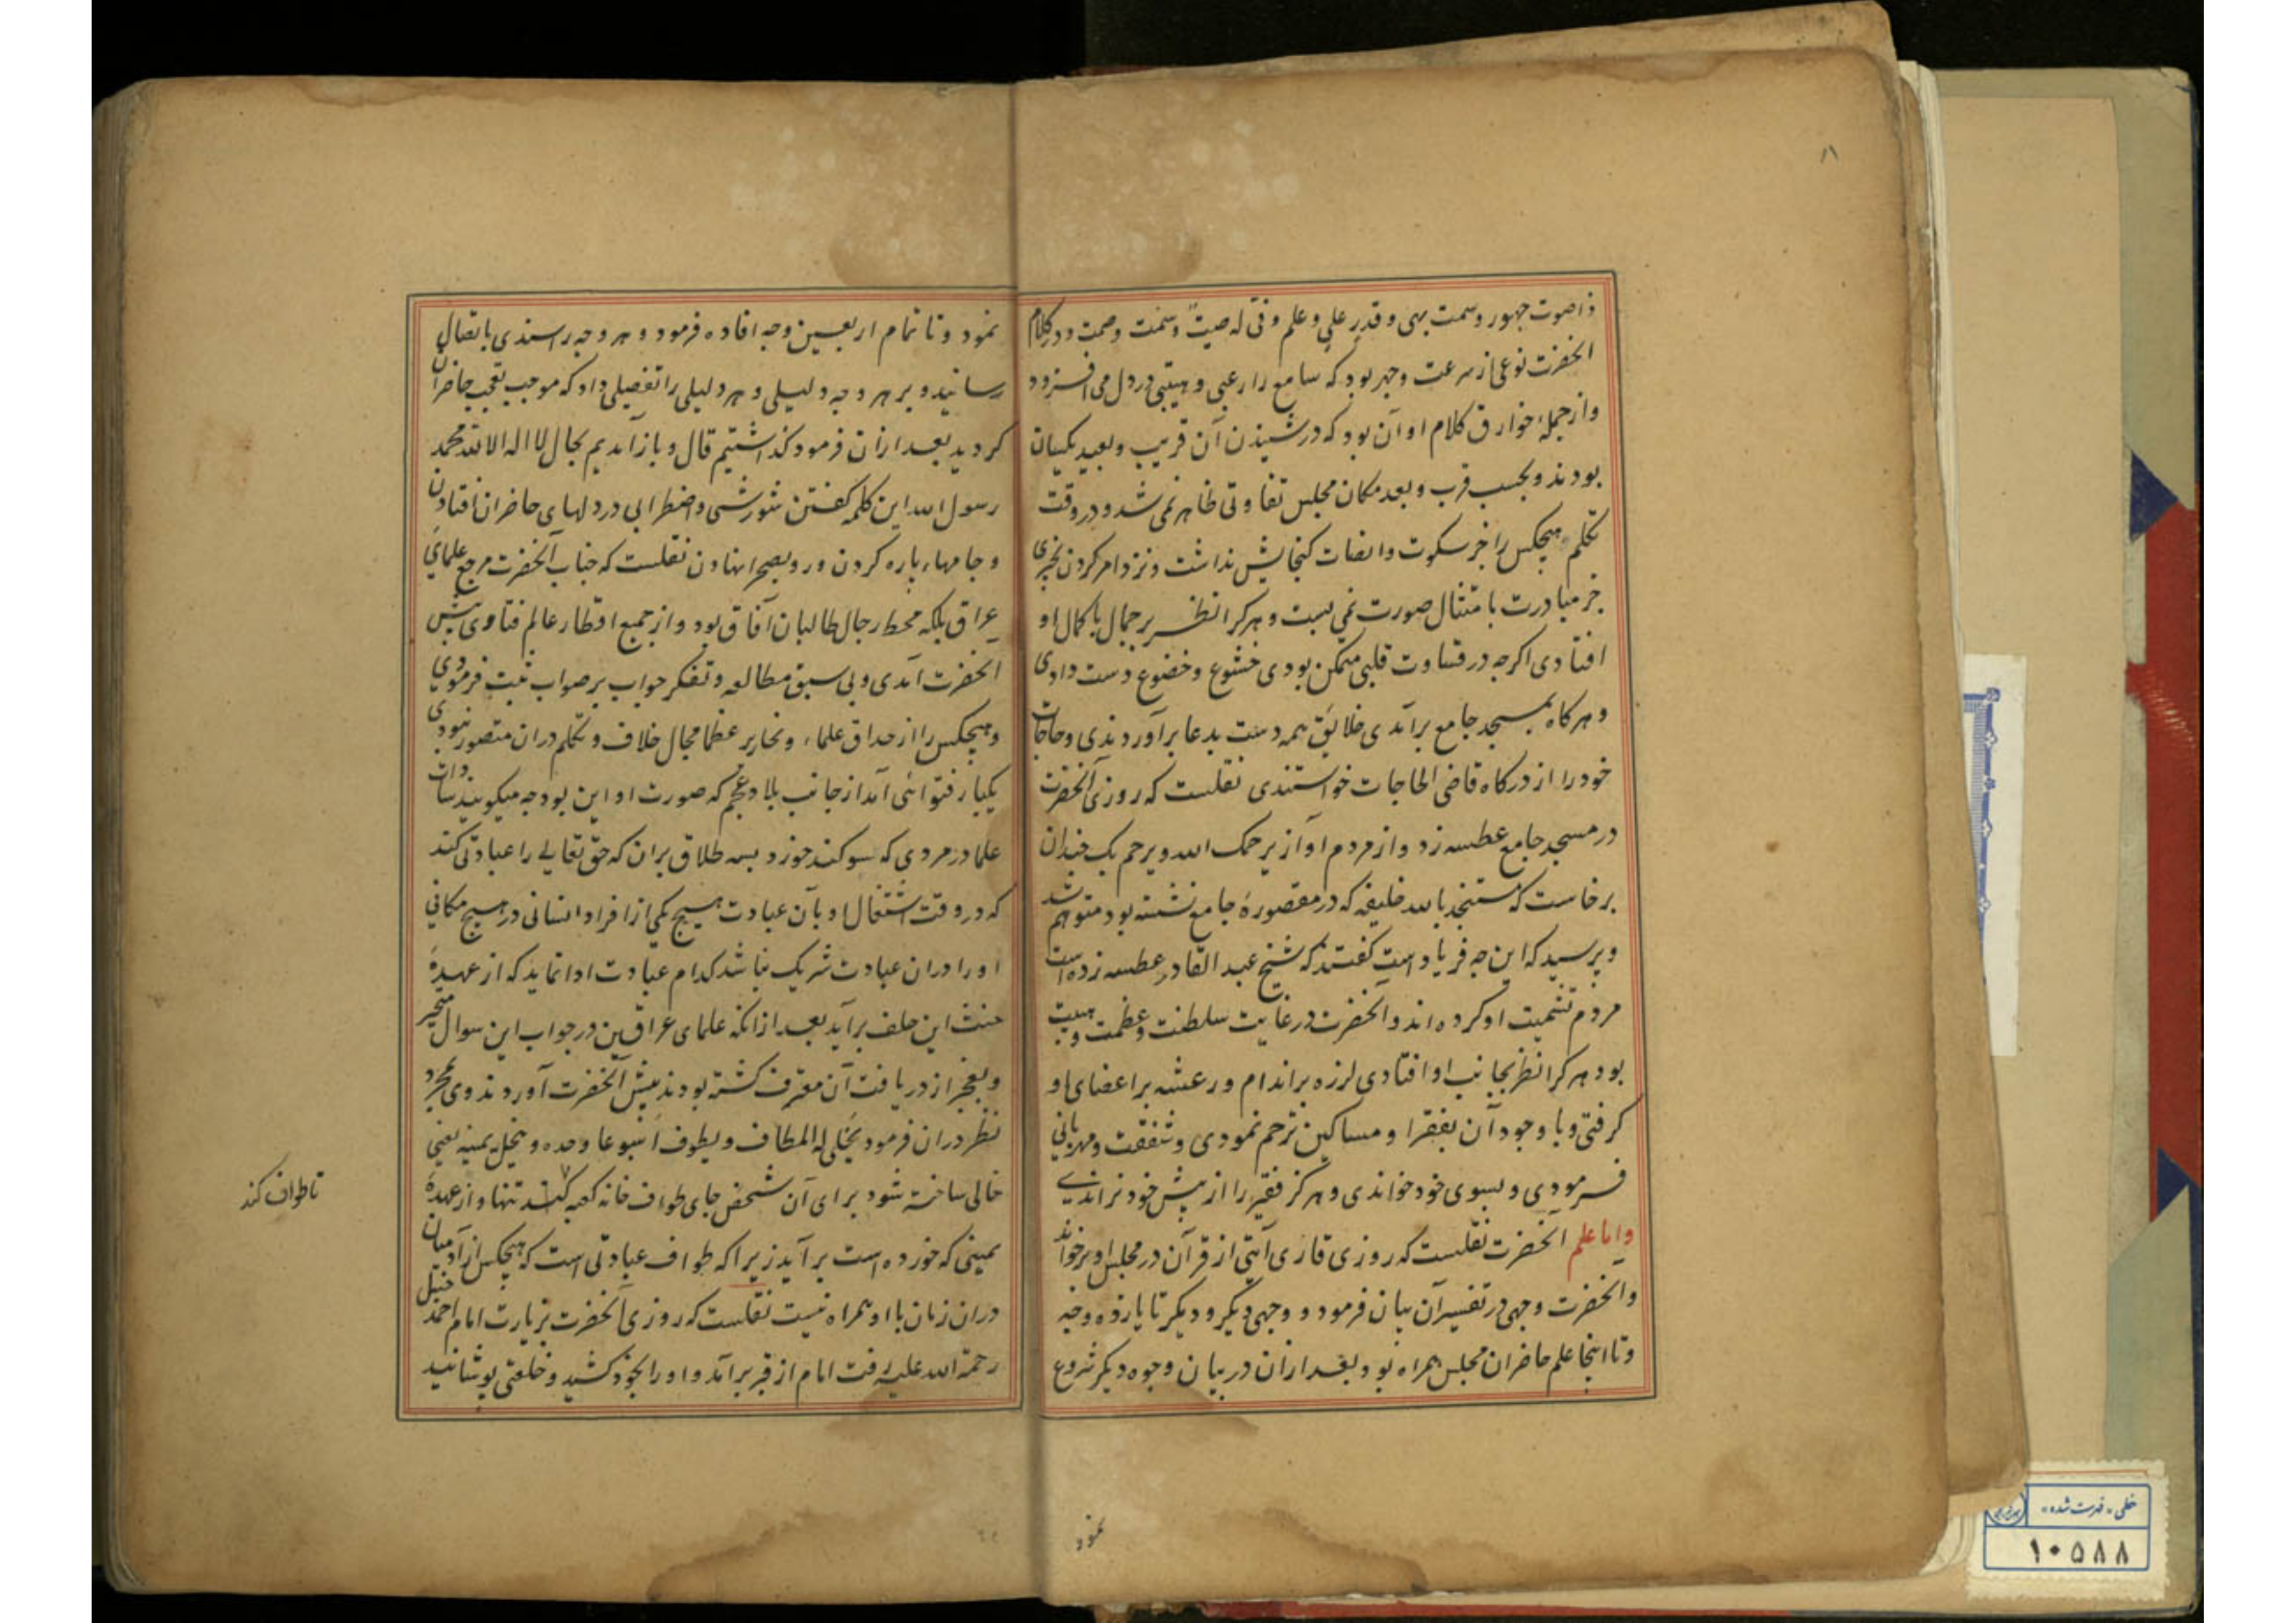 ۱۱
ذا صوت جهور و سمت بهی و قدر علی و علم و فی له صیتٌ و سمت و صمت و در کلام
آنحضرت نوعی از سرعت و جهر بود که سامع را رعبی و هیبتی در دل می افزود
و از جملهٔ خوارق کلام او آن بود که در شنیدن آن قریب و بعید یکسان
بودند و بحسب قرب و بعد مکان مجلس تفاوتی ظاهر نمی شد و در وقت
تکلم هیچکس را جز سکوت و انصات کنجایش نداشت و نزد امر کردن بخیری
جز مبادرت بامتثال صورت نمی بست و هر کرا نظر بر جمال با کمال او
افتادی اکرچه در قساوت قلبی متمکن بودی خشوع و خضوع دست دادی
و هرکاه بمسجد جامع برآمدی خلایق همه دست بدعا برآوردندی و حاجات
خود را از درکاه قاضی الحاجات خواستندی نقلست که روزی آنحضرت
در مسجد جامع عطسه زد و از مردم آواز یرحمک الله و یرحم بک چندان
برخاست که مستنجد بالله خلیفه که در مقصورهٔ جامع نشسته بود متوهم شد
و پرسید که این چه فریاد است کفتند که شیخ عبد القادر عطسه زده است
مردم تشمیت او کرده اند و آنحضرت در غایت سلطنت و عظمت و هیبت
بود هر کرا نظر بجانب او افتادی لرزه بر اندام و رعشه بر اعضای او
کرفتی و با وجود آن بفقرا و مساکین ترحم نمودی و شفقت و مهربانی
فرمودی و بسوی خود خواندی و هرکز فقیر را از پیش خود نراندی
و اما علم آنحضرت نقلست که روزی قاری آیتی از قرآن در مجلس او برخواند
و آنحضرت وجهی در تفسیر آن بیان فرمود و وجهی دیکر و دیکر تا یازده وجه
و تا اینجا علم حاضران مجلس همراه بود و بعد ازان در بیان وجوه دیکر شروع
نمود
نمود و تا تمام اربعین وجه افاده فرمود و هر وجه را سندی باتصال
رسانید و بر هر وجه دلیلی و هر دلیلی را تفصیلی داد که موجب تعجب حاضران
کردید بعد ازان فرمود کذاشتیم قال و باز آمدیم بحال لا اله الا الله محمد
رسول الله این کلمه کفتن شورشی و اضطرابی در دلهای حاضران افتادن
و جامها پاره کردن و رو بصحرا نهادن نقلست که جناب آنحضرت مرجع علمای
عراق بلکه محط رجال طالبان آفاق بود و از جمیع اقطار عالم فتاوی پیش
آنحضرت آمدی و بی سبق مطالعه و تفکر جواب بر صواب ثبت فرمودی
و هیچکس را از حذاق علماء و نحاریر عظما مجال خلاف و تکلم دران متصور نبودی
یکبار فتوائی آمد از جانب بلاد عجم که صورت او این بود چه میکویند سادات
علما در مردی که سوکند خورد بسه طلاق بران که حق تعالی را عبادتی کند
که در وقت اشتغال او بآن عبادت هیچ یکی از افراد انسانی در هیچ مکانی
او را دران عبادت شریک نباشد کدام عبادت ادا نماید که از عهدهٔ
حنث این حلف برآید بعد از آنکه علمای عراقین در جواب این سوال متحیر
و بعجز از دریافت آن معترف کشته بودند پیش آنحضرت آوردند وی بمجرد
نظر دران فرمود یخلی له المطاف و یطوف اسبوعا وحده و ینحل یمینه یعنی
خالی ساخته شود برای آن شخص جای طواف خانه کعبه ۷ کند تنها و از عهدهٔ
تا طواف کند
یمینی که خورده است برآید زیرا که طواف عبادتی است که هیچکس از آدمیان
دران زمان با او همراه نیست نقلست که روزی آنحضرت بزیارت امام احمد حنبل
رحمة الله علیه رفت امام از قبر برآمد و او را بخود کشید و خلعتی پوشانید
خطی - فهرست شده
۱۰۵۸۸